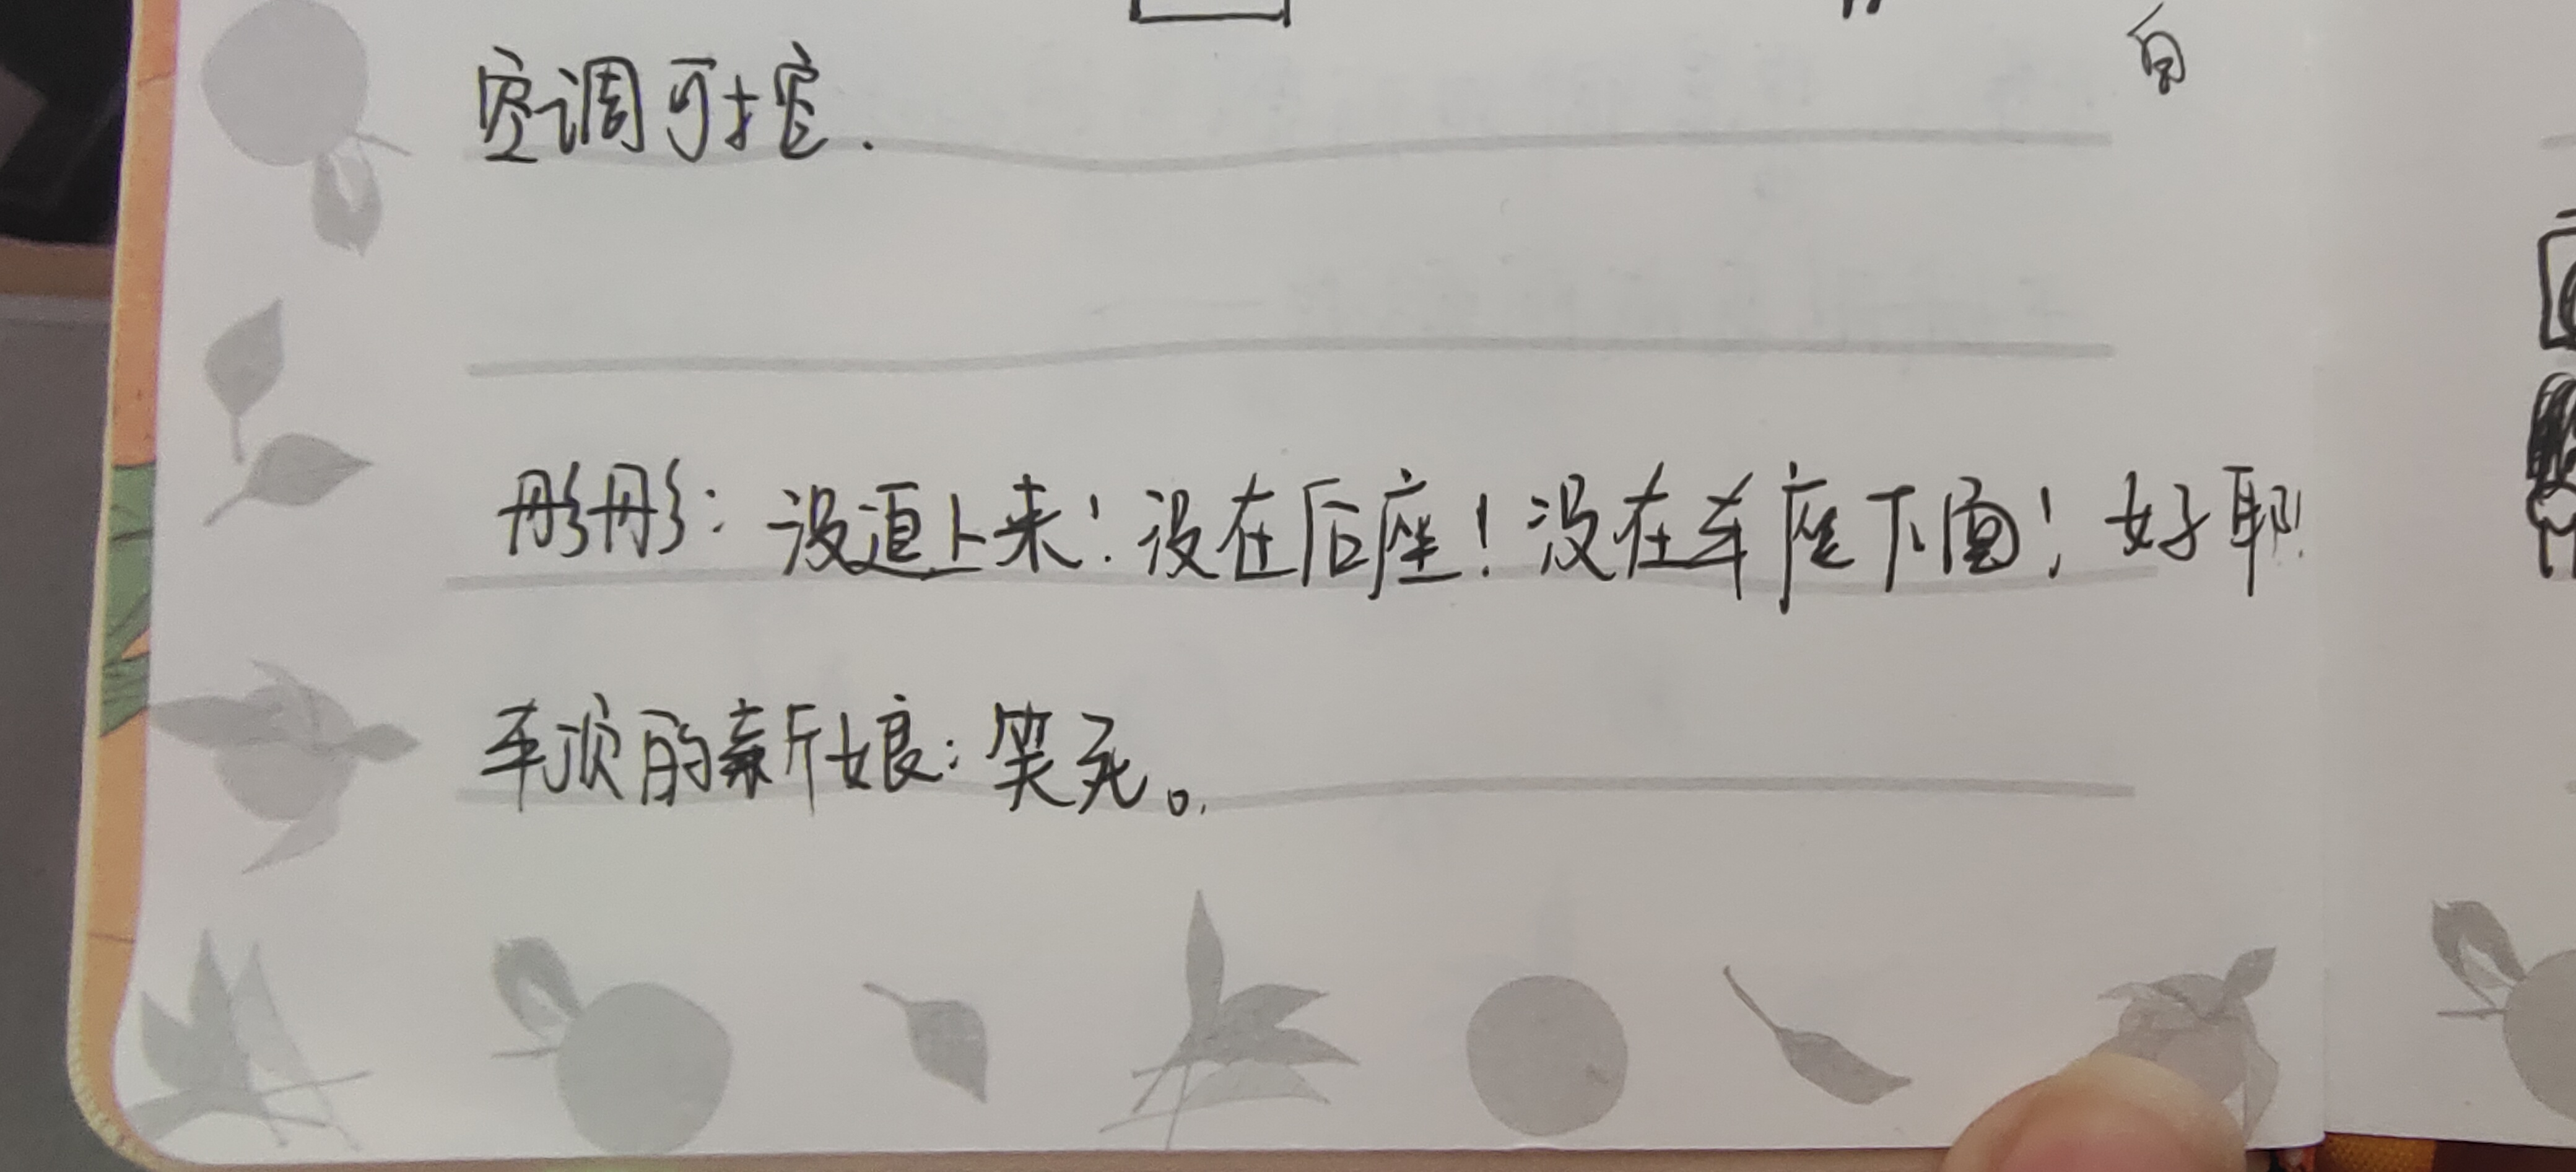 空调可控.
彤彤：没追上来！没在后座！没在车座下面！好耶！
车顶的新娘：笑死。